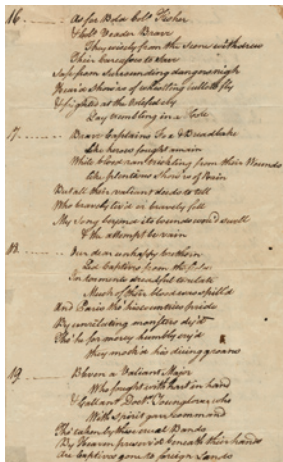 16. As for Bold Colo. Fisher
& Colo. Veader Brave
They wisely from the Scene withdrew
Their Carcases to Save
Safe from Surrounding dangers nigh
Hear'd Show'rs of whistling bullets fly
& frighted at the
Lay trembling in a
17. Brave Captains Fox & Breadbake
Like heroes fought amain
While blood ran trickling from their Wounds
like plenteous Show'rs of Rain
But all their valiant deeds to tell
Who bravely liv'd or bravely fell
My Song beyond its bounds wou'd swell
& the attempt be vain
18. Our dear unhappy brethren
Led Captives from the
In torments dreadful to relate
Much of their blood was spill'd
And Paris tho' his countries pride
By unrelenting monsters dy'd
Tho' he for mercy humbly cry'd
they mock'd his dieing groans
19. Bleven a Valiant Major
Who fought with hart in hand
& Gallant Doctr. Younglove, who
With Spirit gave command
Tho' taken by these cruel Bands
By Heaven preserv'd beneath their hands
Are Captives gone to foreign Lands